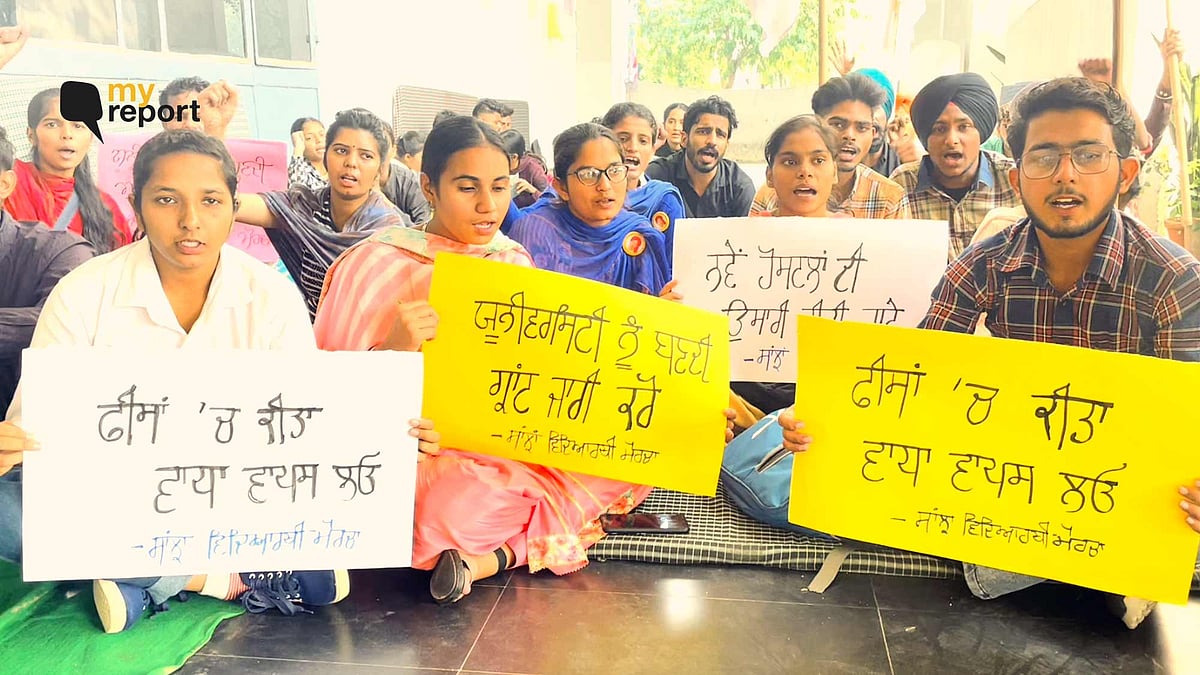 my
report
ਫੀਸਾਂ 'ਚ ਕੀਤਾ
ਵਾਧਾ ਵਾਪਸ ਲਓ
- ਸਾਂਝਾ ਵਿਦਿਆਰਥੀ ਮੋਰਚਾ
ਯੂਨੀਵਰਸਿਟੀ ਨੂੰ ਬਣਦੀ
ਗ੍ਰਾਂਟ ਜਾਰੀ ਕਰੋ
- ਸਾਂਝਾ ਵਿਦਿਆਰਥੀ ਮੋਰਚਾ
ਨਵੇਂ ਹੋਸਟਲਾਂ ਦੀ
ਉਸਾਰੀ ਕੀਤੀ ਜਾਵੇ
- ਸਾਂਝਾ
ਫੀਸਾਂ 'ਚ ਕੀਤਾ
ਵਾਧਾ ਵਾਪਸ ਲਓ
- ਸਾਂਝਾ ਵਿਦਿਆਰਥੀ ਮੋਰਚਾ